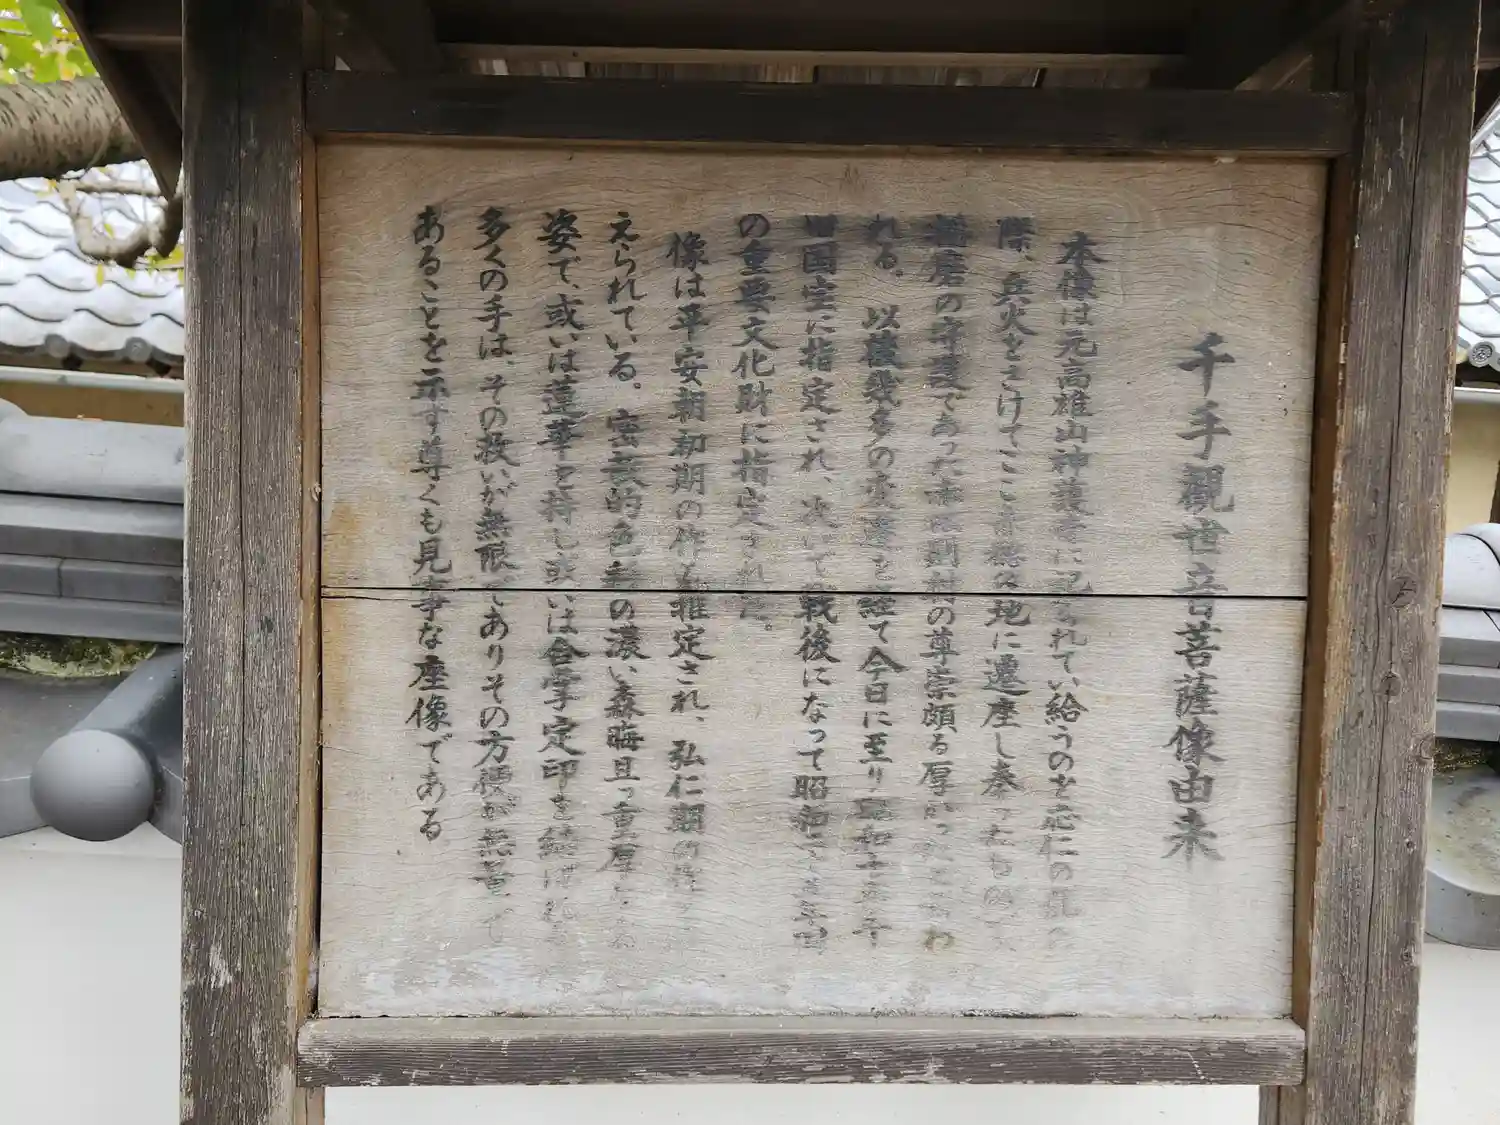 千手観世音菩薩像由来
本像は元高雄山神護寺に祀られてい給うのを応仁の乱の
際、兵火をさけてここ赤穂の地に遷座し奉ったもので
播磨の守護であった赤松則村の尊崇頗る厚かったといわ
れる。以後幾多の変遷を経て今日に至り昭和
旧国宝に指定され、次いで戦後になって昭和
の重要文化財に指定された。
像は平安朝初期の作と推定され、弘仁期の
えられている。密教的色彩の濃い森晦且つ重厚
姿で、或いは蓮華を持し或いは合掌定印を結び
多くの手は、その救いが無限でありその方便が無量で
あることを示す尊くも見事な座像である